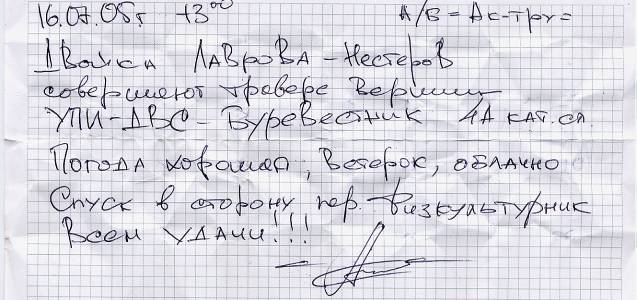 16.07.05г. 13⁰⁰ А/В = Ас-тру =
Двойка Лаврова - Нестеров
совершают траверс вершин
УПИ-ДВО - Буревестник 4А кат. сл.
Погода хорошая, ветерок, облачно
Спуск в сторону пер. Физкультурник
Всем удачи!!!